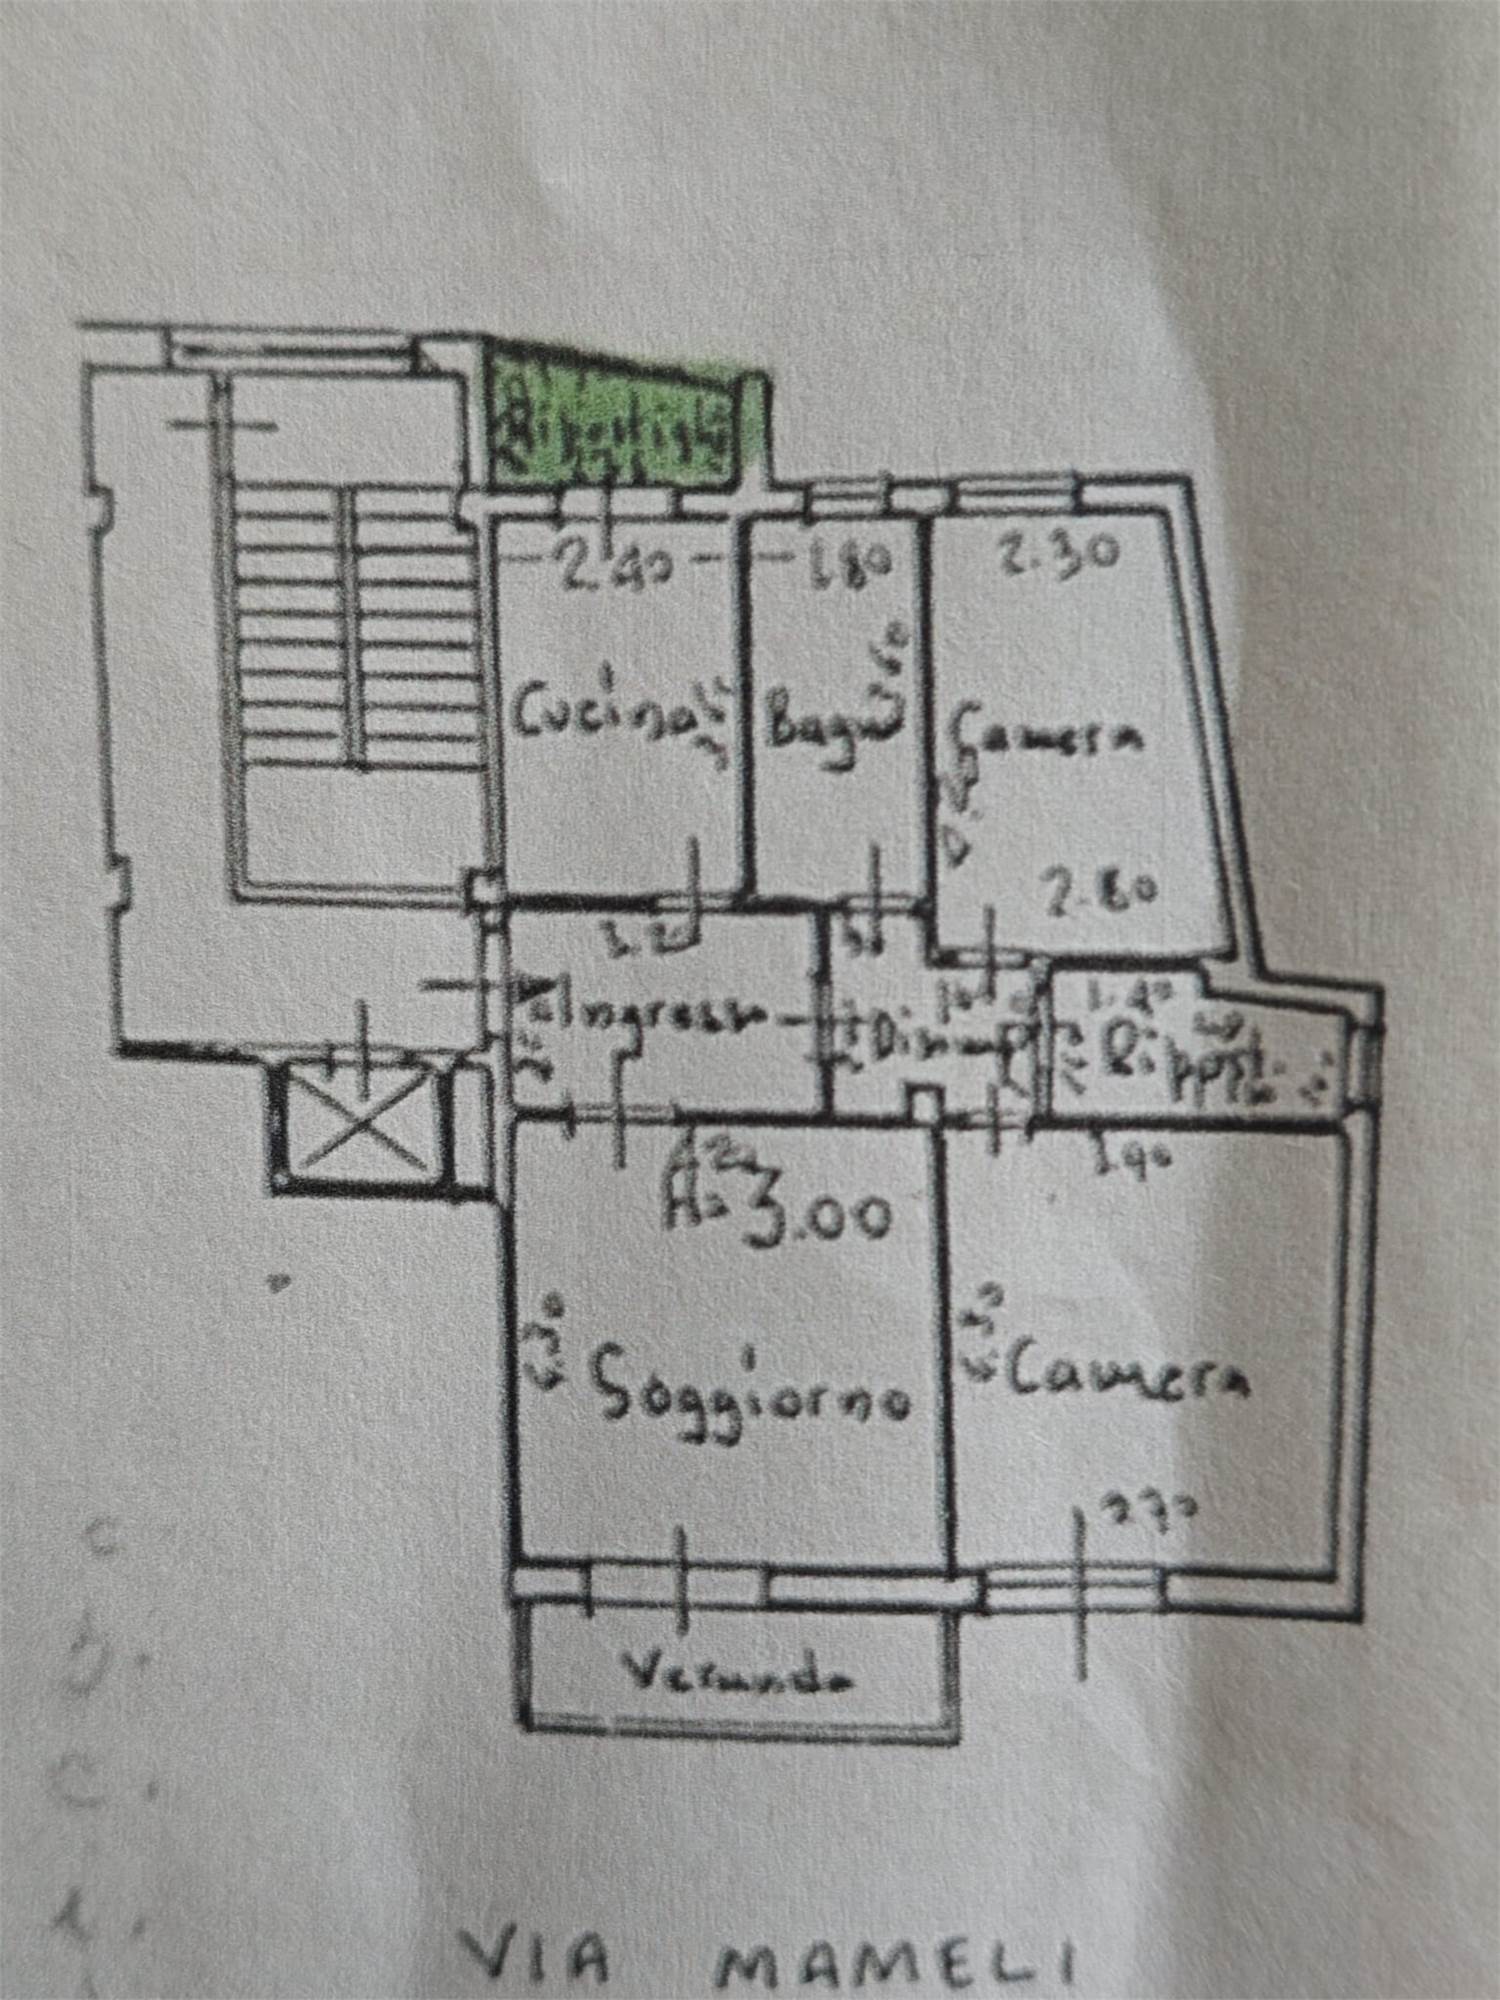 Ripostiglio
2.40
1.80
2.30
Cucina
Bagno
Camera
2.80
3.20
Ingresso
Disimp.
1.40
Ripost.
3.90
H= 3.00
4.30
Soggiorno
4.30
Camera
2.70
Veranda
VIA MAMELI